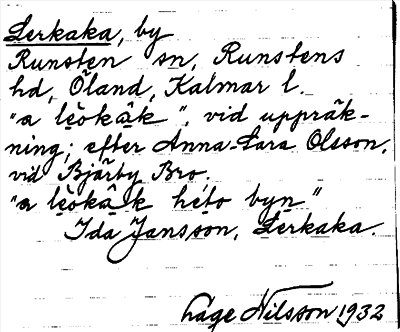 Lerkaka, by
Runsten sn, Runstens
hd, Öland, Kalmar l.
"a lè̤okâ̠k", vid uppräk-
ning; efter Anna-Lara Olsson,
vid Bjärby Bro.
"a lè̤okâ̠k héto byn̠"
Ida Jansson, Lerkaka.
Låge Nilsson 1932